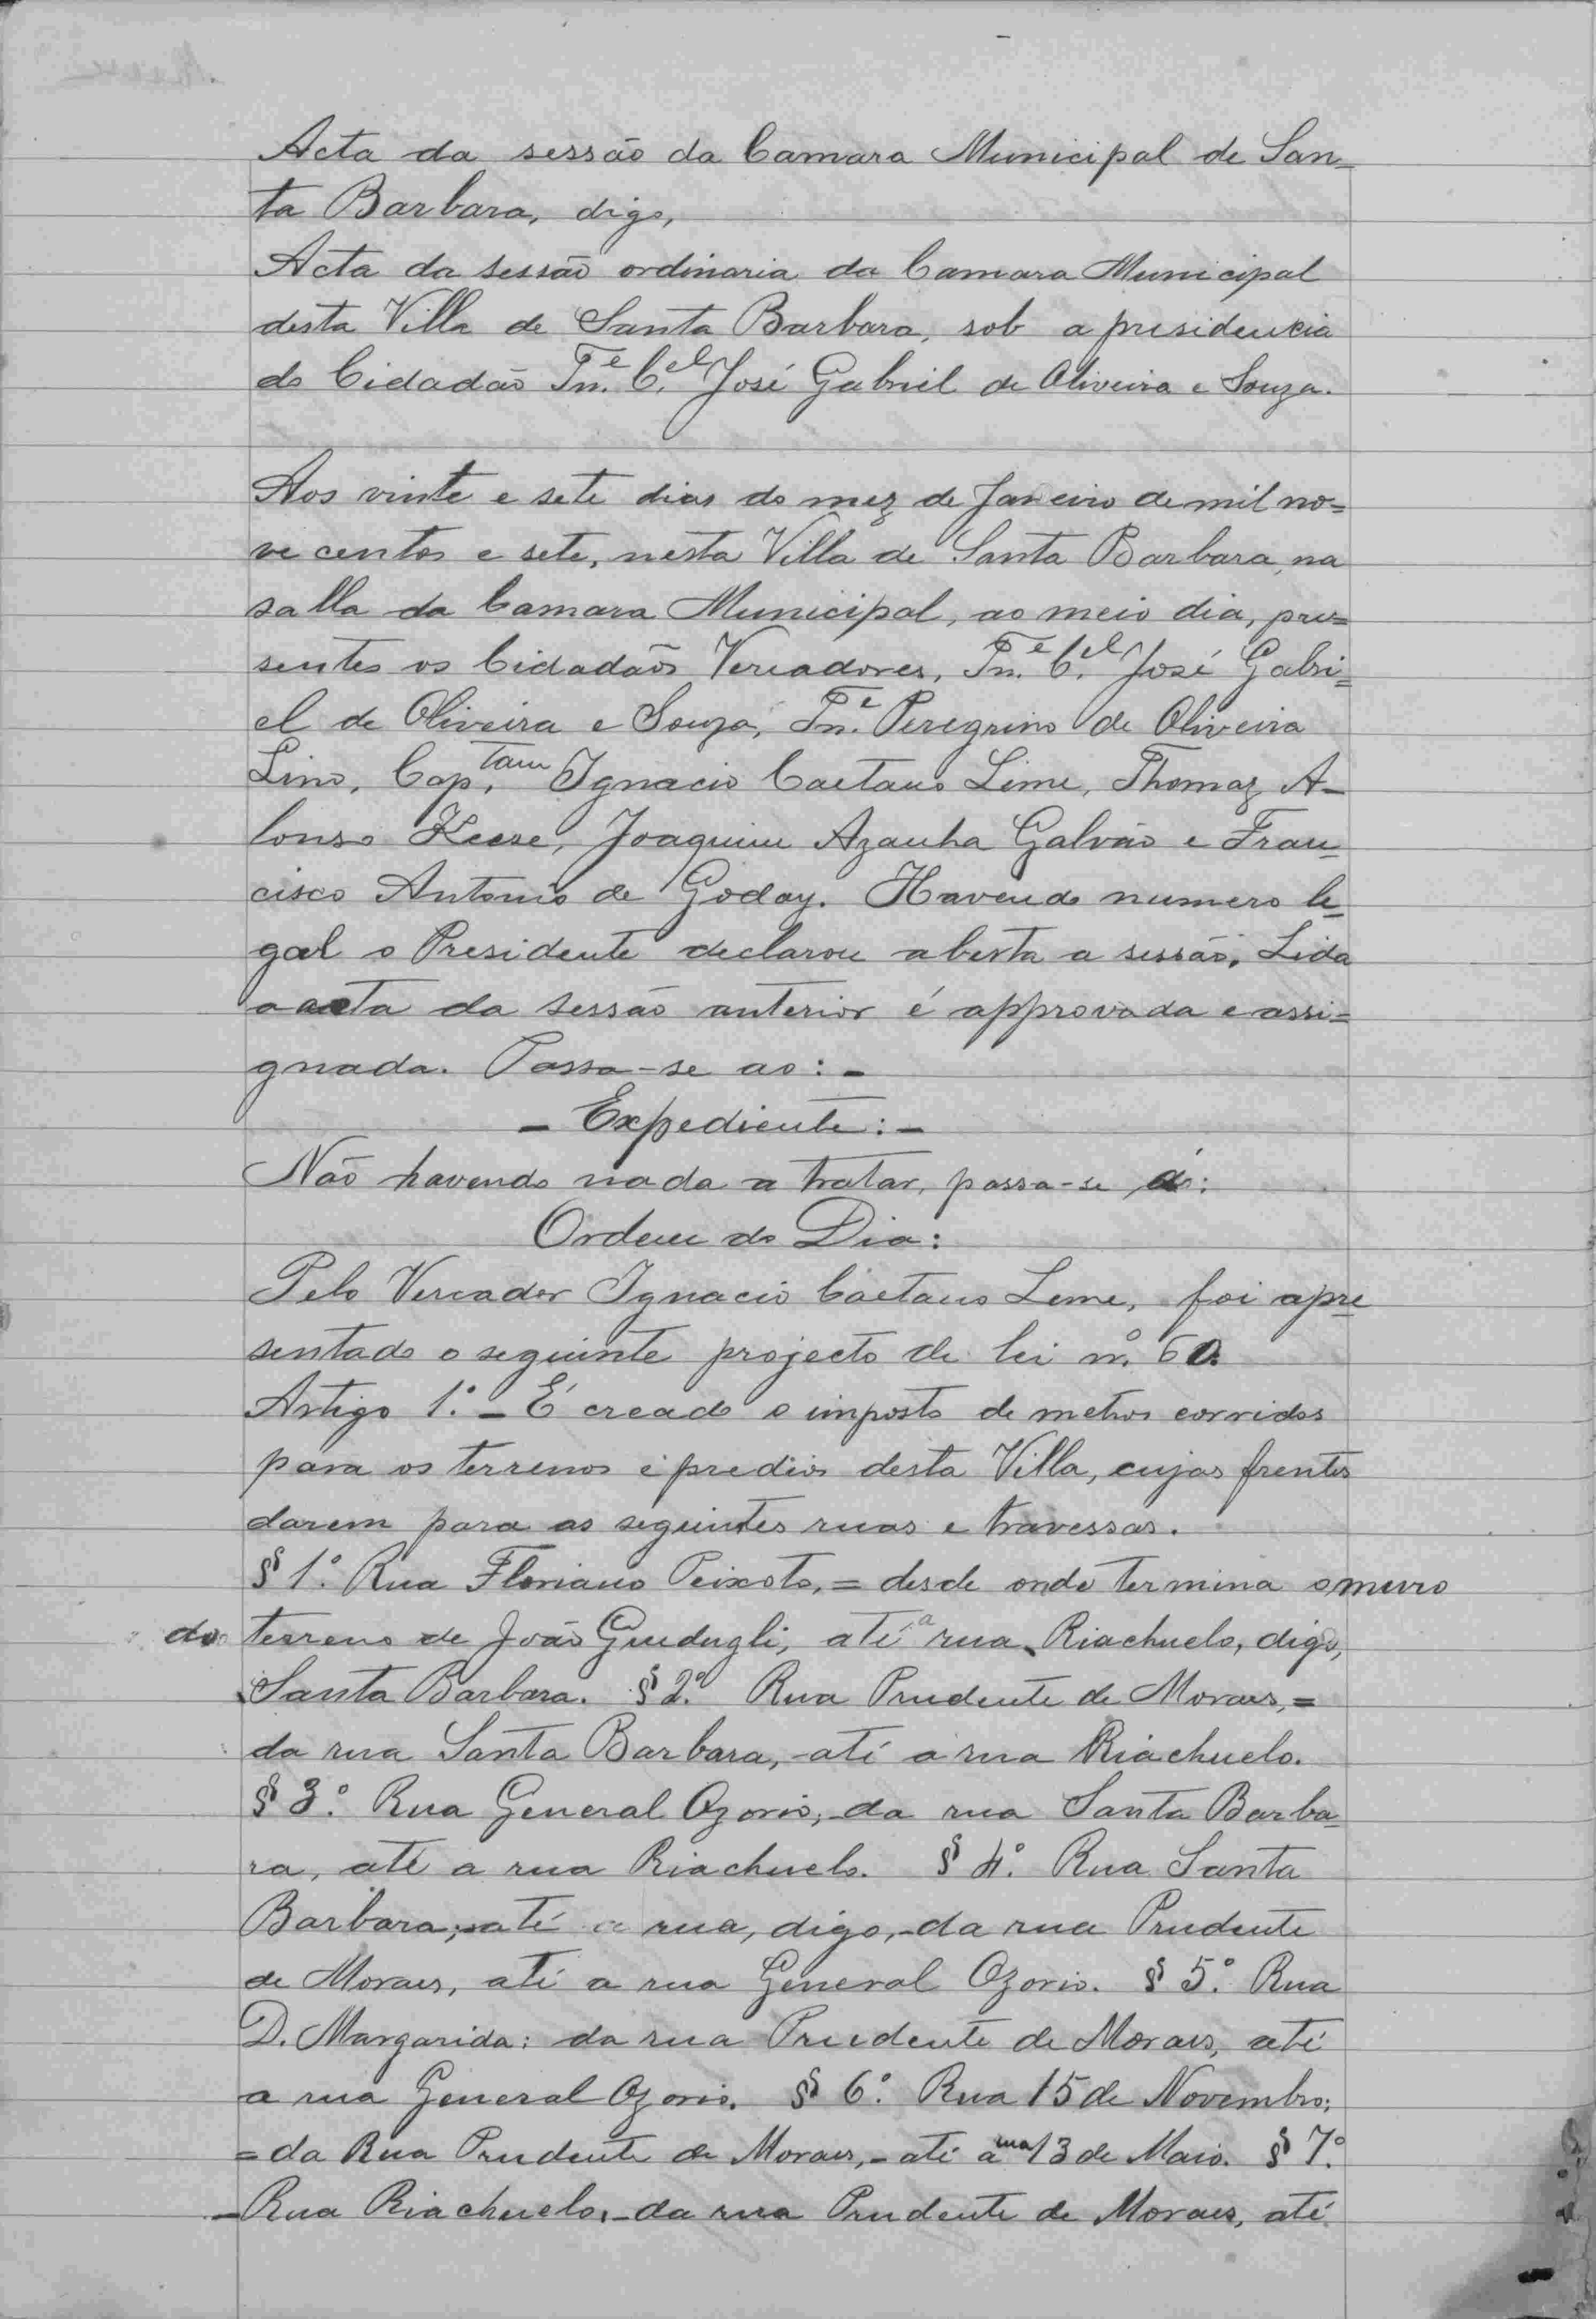 Acta da sessão da Camara Municipal de San=
ta Barbara, digo,
Acta da sessão ordinaria da Camara Municipal
desta Villa de Santa Barbara, sob a presidencia
do Cidadão Tn.e C.el José Gabriel de Oliveira e Souza.
Aos vinte e sete dias do mez de Janeiro de mil no=
ve centos e sete, nesta Villa de Santa Barbara, na
salla da Camara Municipal, ao meio dia, pre=
sentes os Cidadãos Vereadores, Tn.e C.el José Gabri=
el de Oliveira e Souza, Tn.e Peregrino de Oliveira
Lino, Cap.tam Ignacio Caetano Leme, Thomaz A-
lonso Keese, Joaquim Azanha Galvão e Fran=
cisco Antonio de Godoy. Havendo numero le=
gal o Presidente declarou aberta a sessão. Lida
a acta da sessão anterior é approvada e assi=
gnada. Passa-se ao: -
- Expediente: -
Não havendo nada a tratar, passa-se á:
Ordem do Dia:
Pelo Vereador Ignacio Caetano Leme, foi apre=
sentado o seguinte projecto de lei n.º 60.
Artigo 1.º - É creado o imposto de metros corridos
para os terrenos e predios desta Villa, cujas frentes
darem para as seguintes ruas e travessas.
§ 1.º Rua Floriano Peixoto, = desde onde termina o muro
do terreno de João Guidugli, até a rua Riachuelo, digo,
Santa Barbara. § 2.º Rua Prudente de Moraes, =
da rua Santa Barbara, - até a rua Riachuelo.
§ 3.º Rua General Ozorio, - da rua Santa Barba=
ra, até a rua Riachuelo. § 4.º Rua Santa
Barbara, - até a rua, digo, - da rua Prudente
de Moraes, até a rua General Ozorio. § 5.º Rua
D. Margarida: da rua Prudente de Moraes, até
a rua General Ozorio. § 6.º Rua 15 de Novembro;
= da Rua Prudente de Moraes, - até a rua 13 de Maio. § 7.º
- Rua Riachuelo, - da rua Prudente de Moraes, até